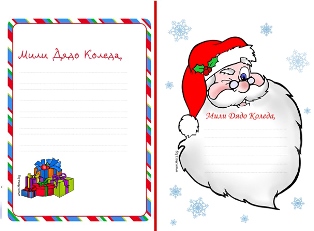 Мили Дядо Коледа,
Мили Дядо Коледа,